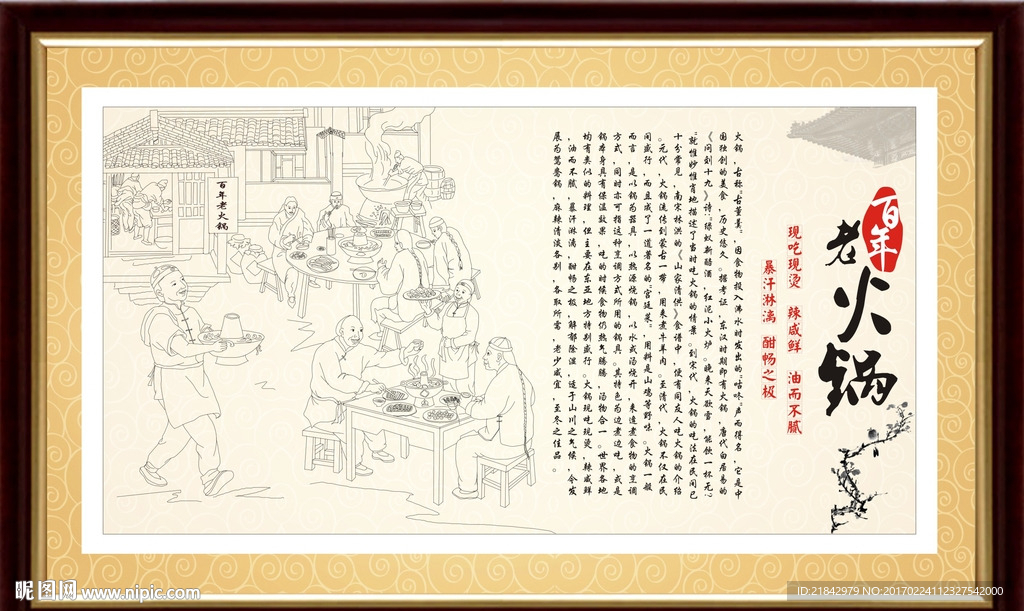 百年
老火锅
現吃現烫 辣咸鲜 油而不腻
暴汗淋漓 酣畅之极
火锅,古称"古董羹",因食物投入沸水时发出的"咕咚"声而得名,它是中
国独创的美食,历史悠久。据考证,东汉时期即有火锅,唐代白居易的
《问刘十九》诗:"绿蚁新醅酒,红泥小火炉。晚来天欲雪,能饮一杯无?
"就惟妙惟肖地描述了当时吃火锅的情景。到宋代,火锅的吃法在民间已
十分常见,南宋林洪的《山家清供》食谱中,便有同友人吃火锅的介绍
。元代,火锅流传到蒙古一带,用来煮牛羊肉。至清代,火锅不仅在民
间盛行,而且成了一道著名的"宫廷菜",用料是山鸡等野味。火锅一般
而言,是以锅为器具,以热源烧锅,以水或汤烧开,来涮煮食物的烹调
方式,同时亦可指这种烹调方式所用的锅具。其特色为边煮边吃,或是
锅本身具有保温效果,吃的时候食物仍热气腾腾,汤物合一。世界各地
均有类似的料理,但主要在东亚地方特别盛行。火锅现吃现烫,辣咸鲜
,油而不腻,暴汗淋漓,酣畅之极,解郁除湿,适于山川之气候,今发
展为鸳鸯锅,麻辣清淡各别,各取所需,老少咸宜,至冬之佳品。
百年老火锅
昵图网 www.nipic.com
ID:21842979 NO:20170224112327542000